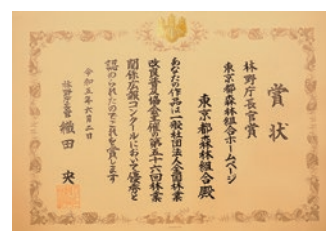 賞状
林野庁長官賞
東京都森林組合ホームページ
東京都森林組合殿
あなたの作品は一般社団法人全国林業
改良普及協会主催の第五十六回林業
関係広報コンクールにおいて優秀と
認められたのでこれを賞します
令和五年六月二日
林野庁長官 織田 央